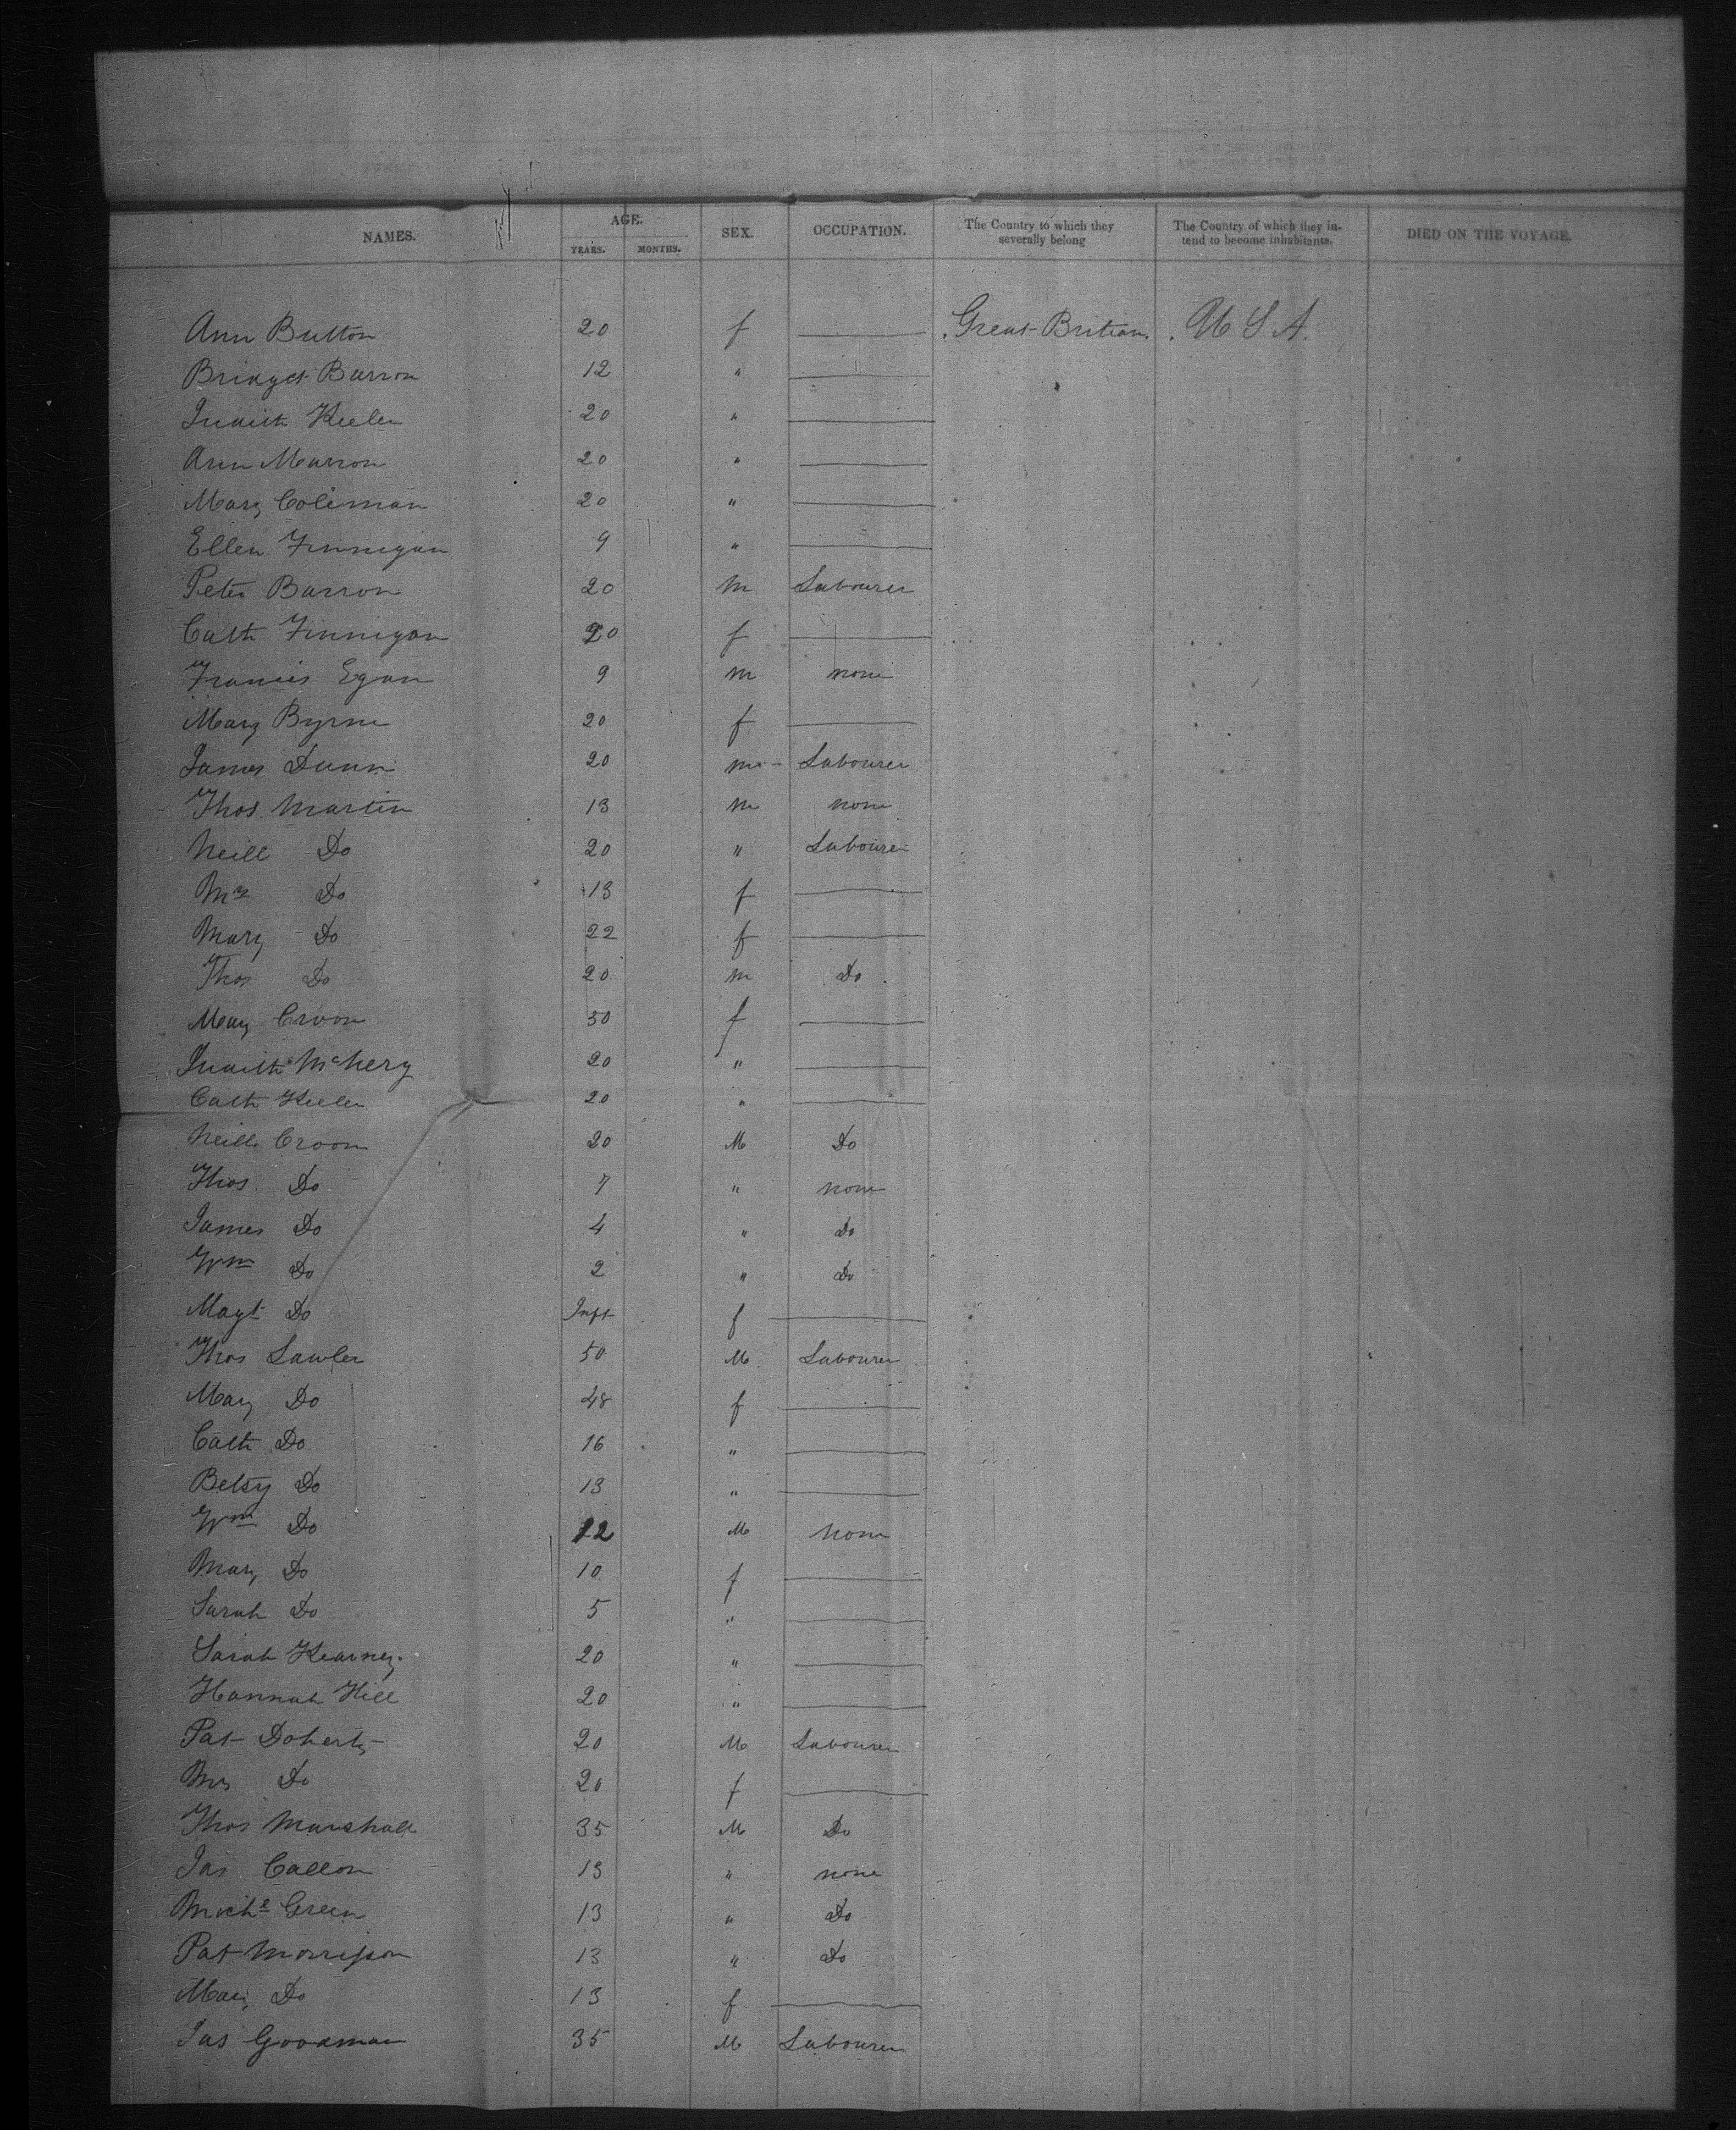 NAMES. AGE. SEX. OCCUPATION. The Country to which they severally belong The Country of which they intend to become inhabitants. DIED ON THE VOYAGE.
YEARS. MONTHS.
Ann Button 20 f —— Great Britian. U S A.
Bridget Barron 12 " ——
Judith Keelen 20 " ——
Ann Marron 20 " ——
Mary Coleman 20 " ——
Ellen Finnigan 9 " ——
Peter Barron 20 m Labourer
Cath Finnigan 20 f ——
Francis Egan 9 m none
Mary Byrne 20 f ——
James Dunn 20 m Labourer
Thos Martin 13 m none
Neill Do 20 " Labourer
Mrs Do 13 f ——
Mary Do 22 f ——
Thos Do 20 m Do
Mary Croon 30 f ——
Judith McNery 20 " ——
Cath Keelen 20 " ——
Neill Croon 20 M Do
Thos Do 7 " none
James Do 4 " Do
Wm Do 2 " Do
Magt Do Inft f ——
Thos Lawler 50 M Labourer
Mary Do 48 f ——
Cath Do 16 " ——
Betsy Do 13 " ——
Wm Do 12 M none
Mary Do 10 f ——
Sarah Do 5 " ——
Sarah Kearney 20 " ——
Hannah Hill 20 " ——
Pat Doherty 20 M Labourer
Mrs Do 20 f ——
Thos Marshall 35 M Do
Jas Callon 13 " none
Michl Green 13 " Do
Pat Morrison 13 " Do
Mary Do 13 f ——
Jas Goodman 35 M Labourer